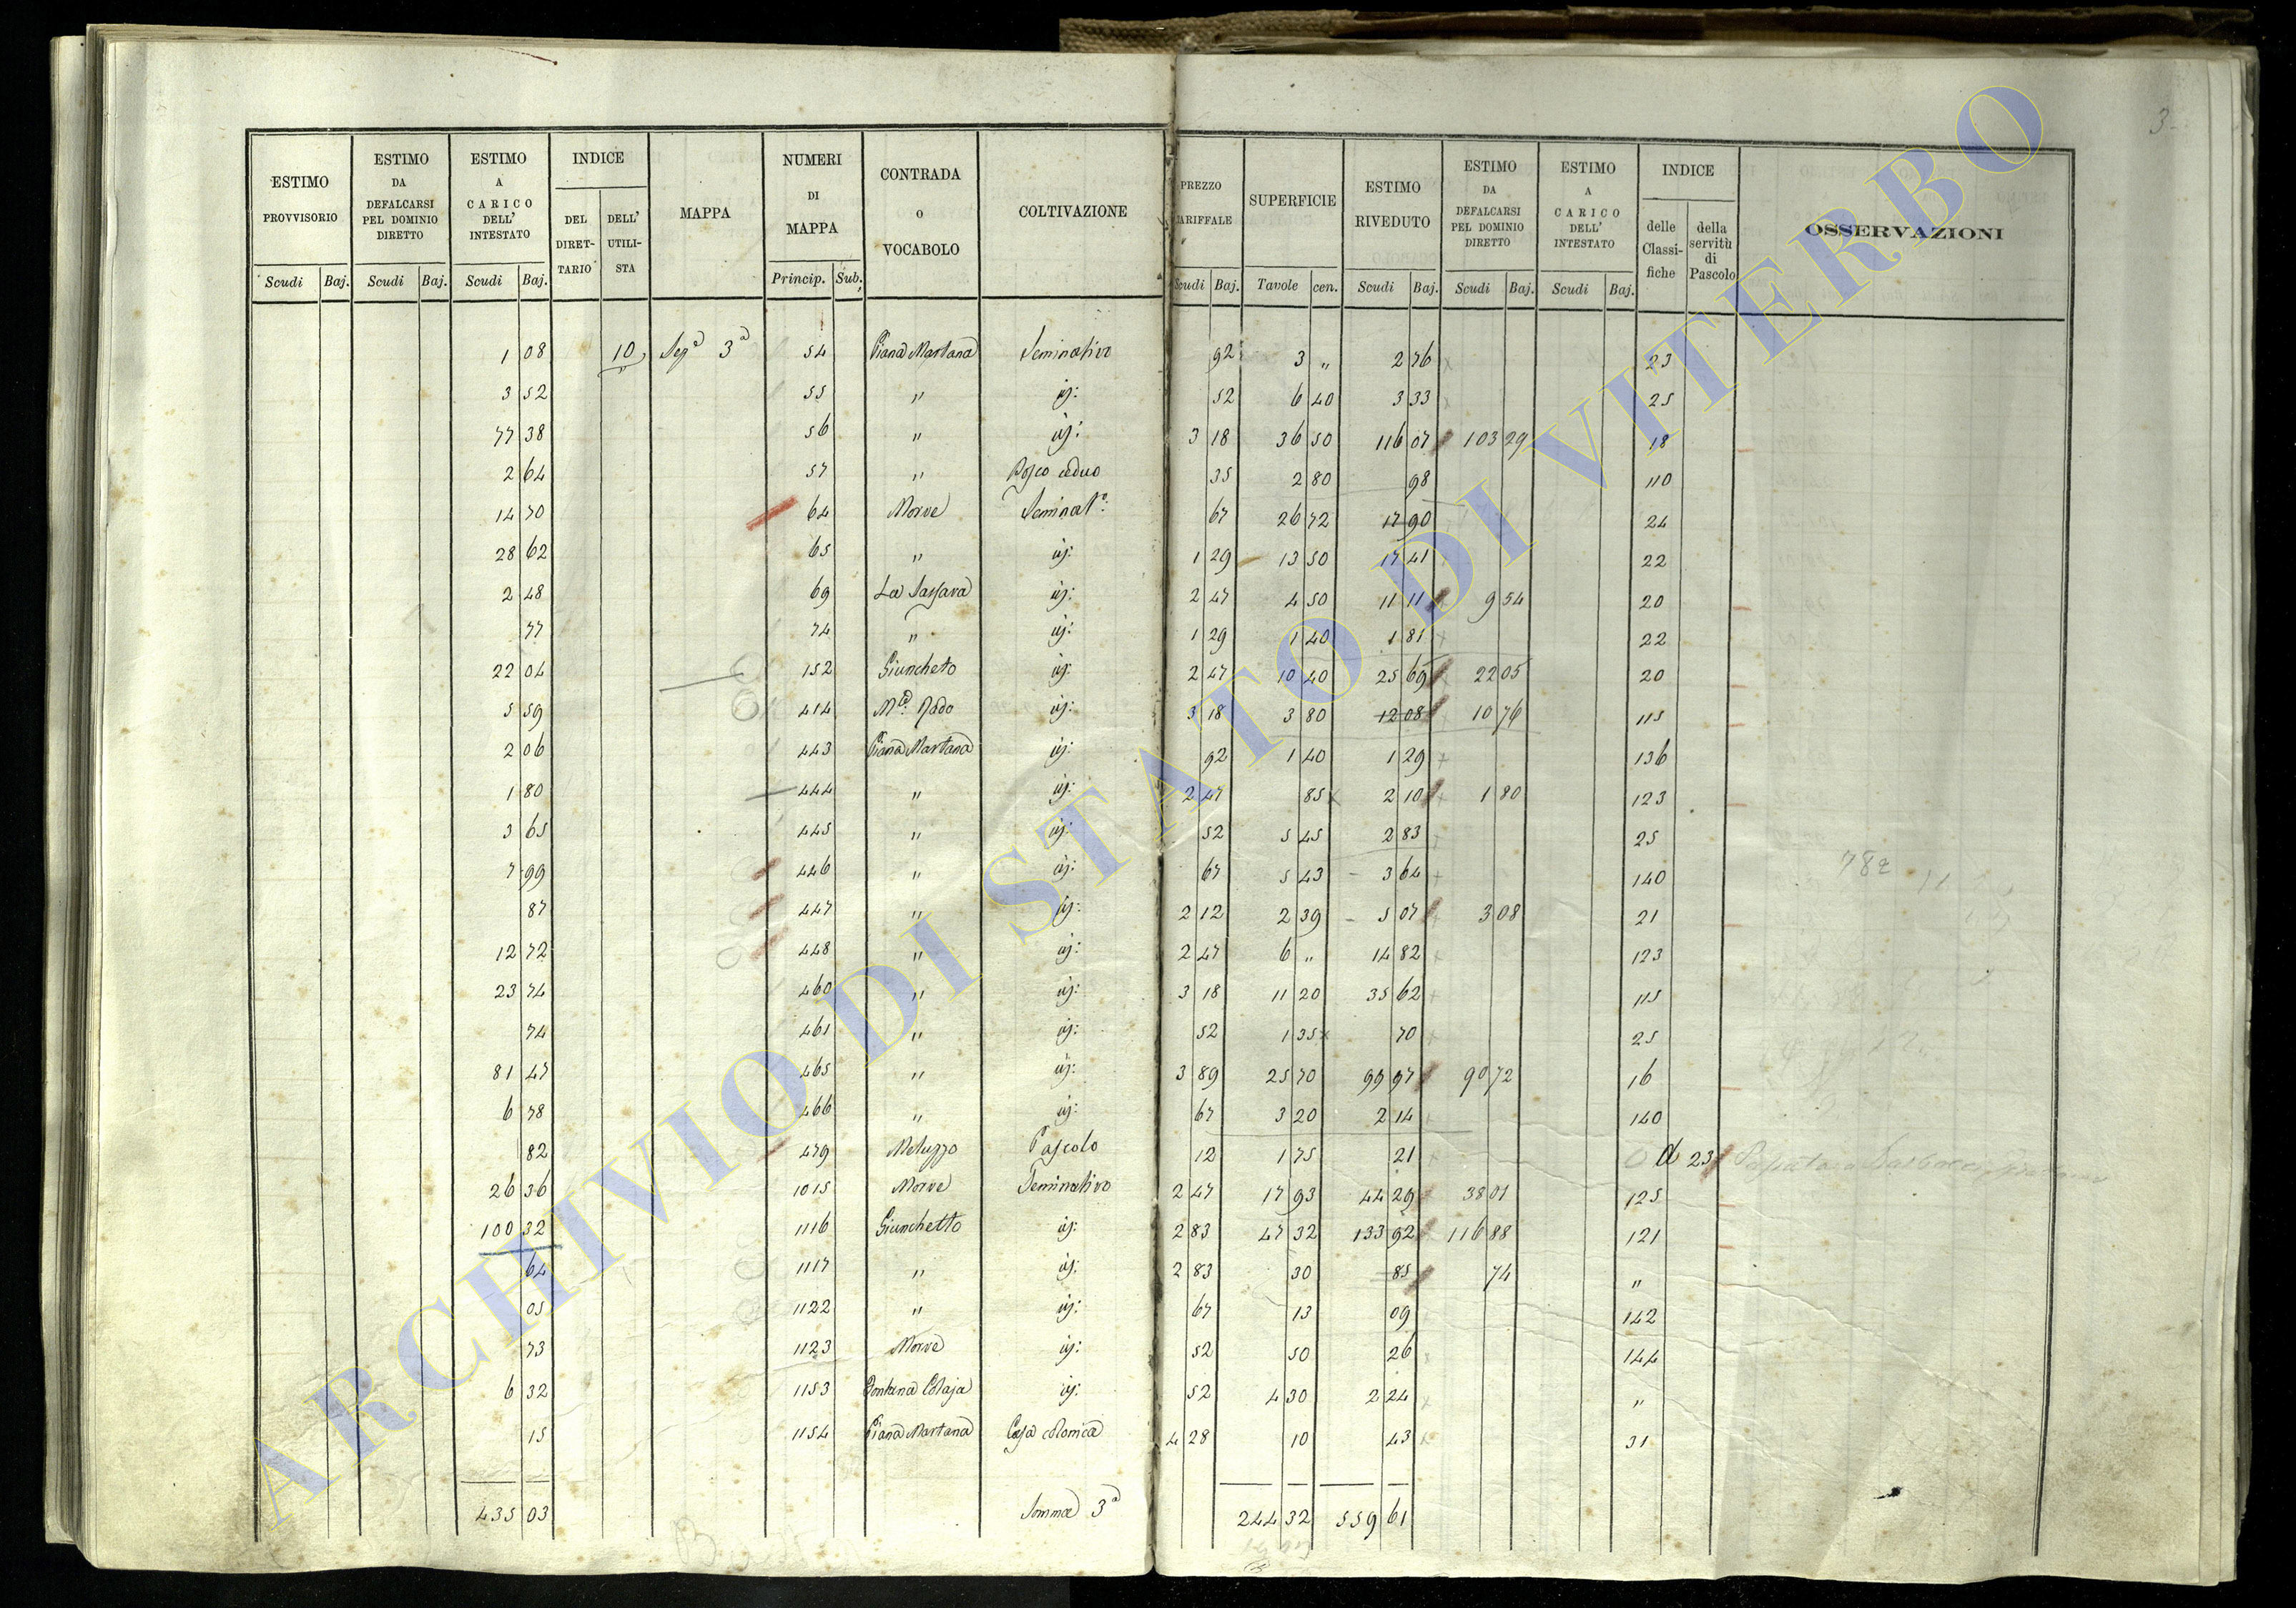 3
ESTIMO PROVVISORIO | ESTIMO DA DEFALCARSI PEL DOMINIO DIRETTO | ESTIMO A CARICO DELL' INTESTATO | INDICE DEL DIRETTARIO | DELL' UTILISTA | MAPPA | NUMERI DI MAPPA | CONTRADA O VOCABOLO | COLTIVAZIONE | PREZZO TARIFFALE | SUPERFICIE | ESTIMO RIVEDUTO | ESTIMO DA DEFALCARSI PEL DOMINIO DIRETTO | ESTIMO A CARICO DELL' INTESTATO | INDICE delle Classifiche | della servitù di Pascolo | OSSERVAZIONI
Scudi Baj. | Scudi Baj. | Scudi Baj. | Princip. Sub. | Scudi Baj. | Tavole cen. | Scudi Baj. | Scudi Baj. | Scudi Baj.
1 08 | 10 | Seg.a 3a | 54 | Piana Martana | Seminativo | 92 | 3 " | 2 76 | 23
3 52 | 55 | " | id: | 52 | 6 40 | 3 33 | 25
77 38 | 56 | " | id: | 3 18 | 36 50 | 116 07 | 103 29 | 18
2 64 | 57 | " | Bosco ceduo | 35 | 2 80 | 98 | 110
14 70 | 64 | Morve | Seminat.o | 67 | 26 72 | 17 90 | 24
28 62 | 65 | " | id: | 1 29 | 13 50 | 17 41 | 22
2 48 | 69 | La Sassara | id: | 2 47 | 4 50 | 11 11 | 9 54 | 20
77 | 74 | " | id: | 1 29 | 1 40 | 1 81 | 22
22 04 | 152 | Giuncheto | id: | 2 47 | 10 40 | 25 69 | 22 05 | 20
5 59 | 414 | id: | 3 18 | 3 80 | 12 08 | 10 76 | 115
2 06 | 443 | Piana Martana | id: | 92 | 1 40 | 1 29 | 136
1 80 | 444 | " | id: | 2 47 | 85 | 2 10 | 1 80 | 123
3 65 | 445 | " | id: | 52 | 5 45 | 2 83 | 25
7 99 | 446 | " | id: | 67 | 5 43 | 3 64 | 140
87 | 447 | " | id: | 2 12 | 2 39 | 5 07 | 3 08 | 21
12 72 | 448 | " | id: | 2 47 | 6 " | 14 82 | 123
23 74 | 460 | " | id: | 3 18 | 11 20 | 35 62 | 115
74 | 461 | " | id: | 52 | 1 35 | 70 | 25
81 47 | 465 | " | id: | 3 89 | 25 70 | 99 97 | 90 72 | 16
6 78 | 466 | " | id: | 67 | 3 20 | 2 14 | 140
82 | 479 | Meluzzo | Pascolo | 12 | 1 75 | 21 | d 23
26 36 | 1015 | Morve | Seminativo | 2 47 | 17 93 | 44 29 | 38 01 | 125
100 32 | 1116 | Giunchetto | id: | 2 83 | 47 32 | 133 92 | 116 88 | 121
64 | 1117 | " | id: | 2 83 | 30 | 85 | 74 | "
05 | 1122 | " | id: | 67 | 13 | 09 | 142
73 | 1123 | Morve | id: | 52 | 50 | 26 | 144
6 32 | 1153 | Fontana Colaja | id: | 52 | 4 30 | 2 24 | "
15 | 1154 | Piana Martana | Casa colonica | 4 28 | 10 | 43 | 31
435 03 | Somma 3a | 244 32 | 559 61
ARCHIVIO DI STATO DI VITERBO